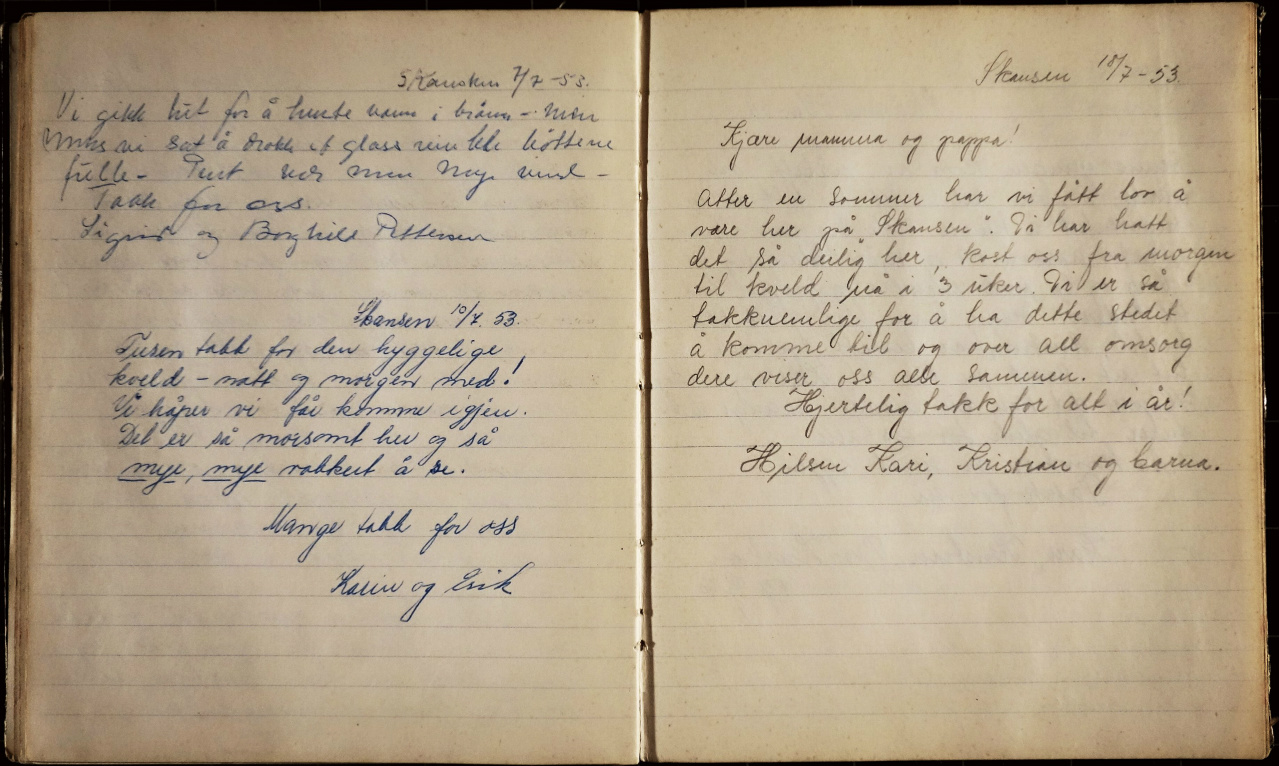 Skansen 7/7 -53.
Vi gikk hit for å hente vann i brønn - men
mens vi sat å drakk et glass vin ble bøttene
fulle - Pent vær men mye vind -
Takk for oss.
Sigrid og Borghild Pettersen
Skansen 10/7. 53.
Tusen takk for den hyggelige
kveld - natt og morgen med!
Vi håper vi får komme igjen.
Det er så morsomt her og så
mye, mye vakkert å se.
Mange takk for oss
Karin og Erik
Skansen 18/7 - 53
Kjære mamma og pappa!
Atter en sommer har vi fått lov å
være her på "Skansen". Vi har hatt
det så deilig her, kost oss fra morgen
til kveld nå i 3 uker. Vi er så
takknemlige for å ha dette stedet
å komme til og over all omsorg
dere viser oss alle sammen.
Hjertelig takk for alt i år!
Hilsen Kari, Kristian og barna.